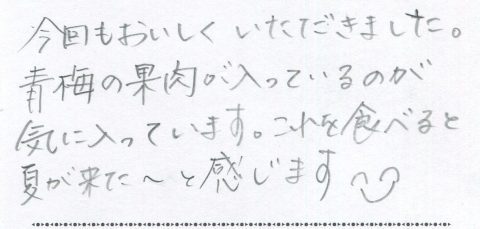 今回もおいしくいただきました。
青梅の果肉が入っているのが
気に入っています。これを食べると
夏が来た～と感じます